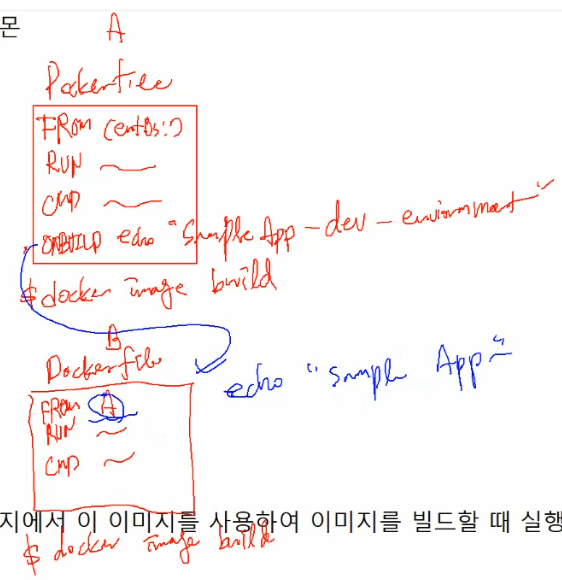 몬
A
Dockerfile
FROM CentOS:7
RUN
CMD
ONBUILD echo "Sample App - dev - environment"
$ docker image build
B
Dockerfile
echo "Sample App~"
FROM A
RUN
CMD
지에서 이 이미지를 사용하여 이미지를 빌드할 때 실행
$ docker image build